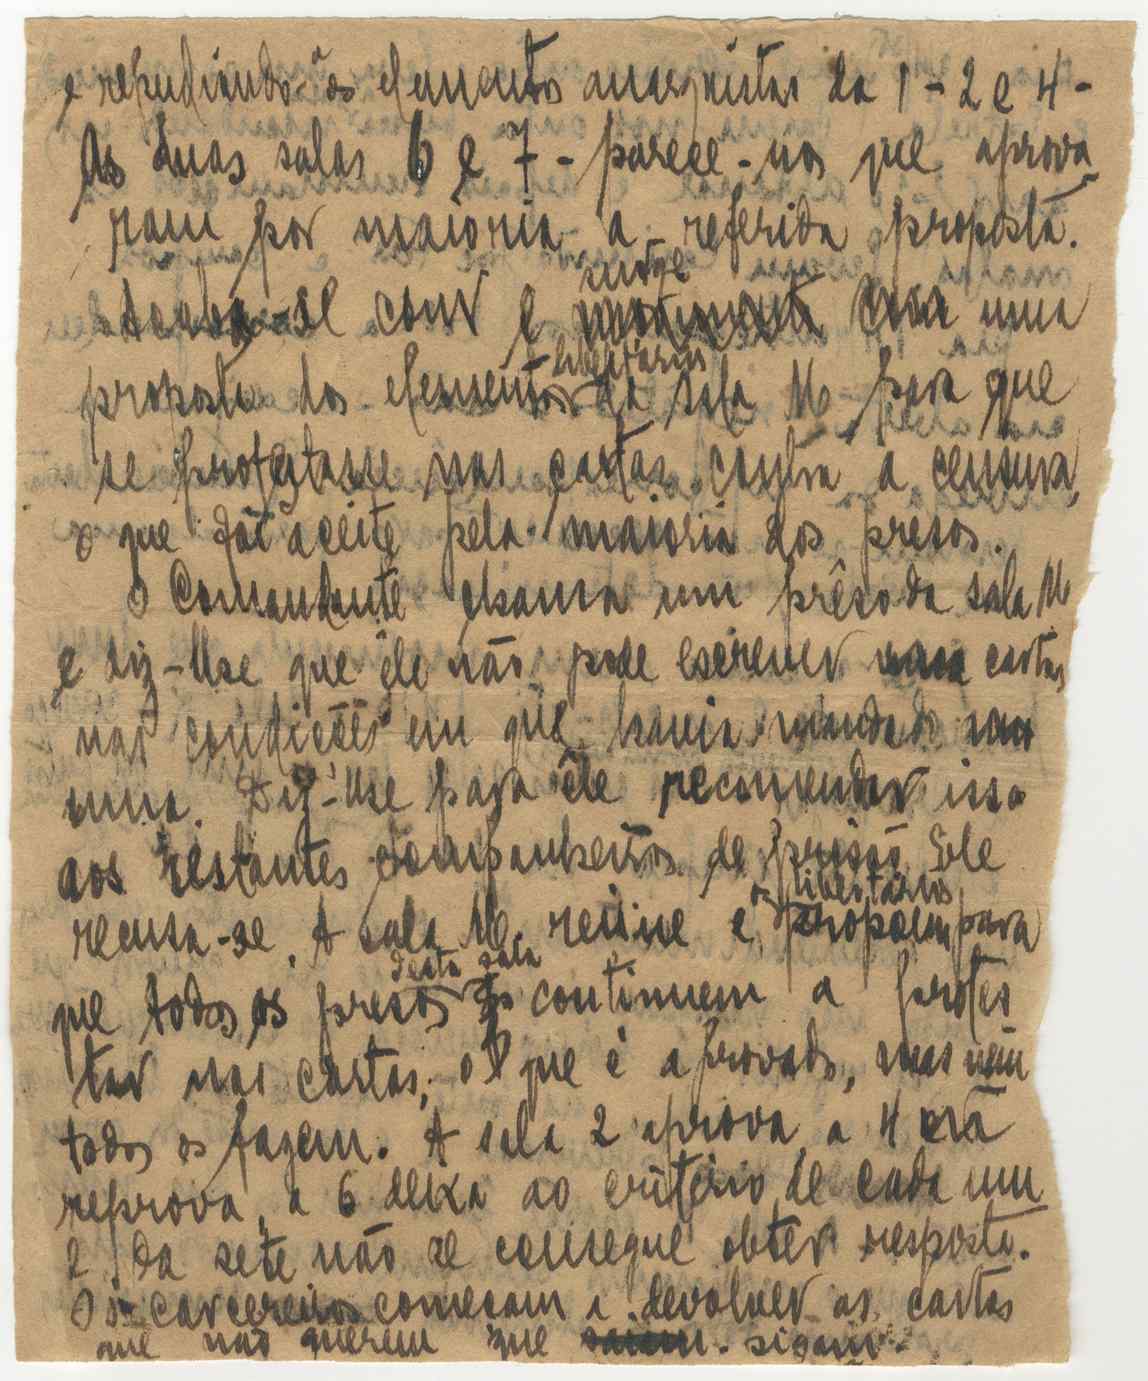 e repudiando os elementos anarquistas da 1 - 2 e 4 -
As duas salas 6 e 7 - parece-nos que aprova
ram por maioria a referida proposta.
surge
Acaba-se com e uma
libertarios
proposta dos elementos da sala M para que
se protestasse nas cartas contra a censura,
o que foi aceite pela maioria dos presos.
O Comandante chama um prêso da sala M
e diz-lhe que êle não pode escrever cartas
nas condições em que havia mandado
uma. Diz-lhe para êle recomendar isso
aos restantes companheiros de prisão. Ele
os libertarios
recusa-se. A sala M. reune e propoem para
desta sala
que todos os presos continuem a protes
tar nas cartas, o que é aprovado, mas nem
todos os fazem. A sala 2 aprova, a 4
reprova, a 6 deixa ao critério de cada um
e da sete não se consegue obter resposta.
Os carcereiros começam a devolver as cartas
que não querem que sigam.